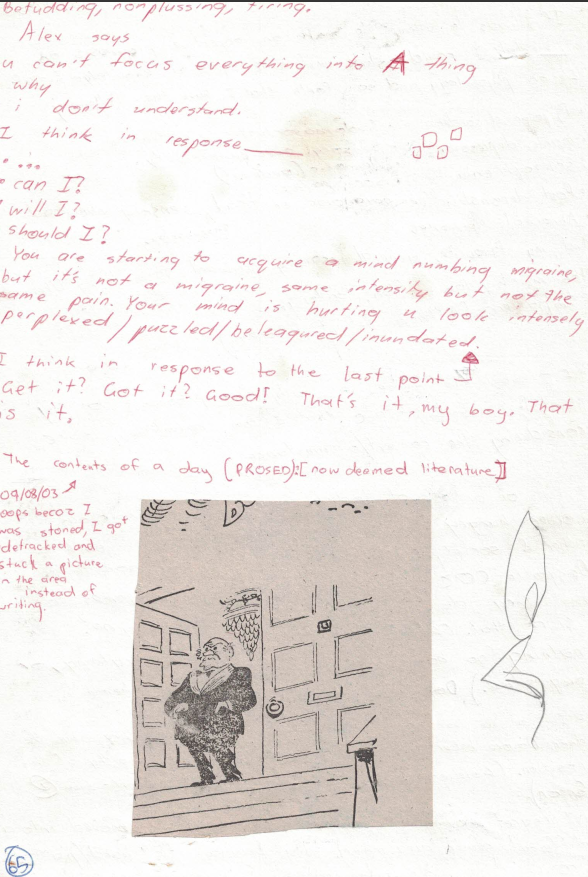 Befudding, nonplussing, tiring.
Alex says
u can't focus everything into A thing
why
i don't understand.
I think in response
. ...
can I?
will I?
should I?
You are starting to acquire a mind numbing migraine,
but it's not a migraine, same intensity but not the
same pain. Your mind is hurting u look intensely
perplexed/puzzled/beleagured/inundated.
I think in response to the last point
Get it? Got it? Good! That's it, my boy. That
is it,
The contents of a day (PROSED):[now deemed literature]
09/08/03
oops becoz I
was stoned, I got
detracked and
stuck a picture
in the area
instead of
writing.
65